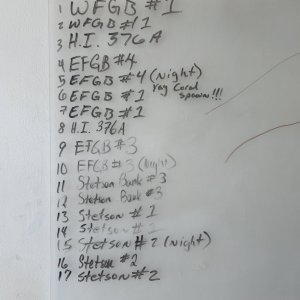 1 WFGB #1
2 WFGB #1
3 H.I. 376A
4 EFGB #4
5 EFGB #4 (Night)
6 EFGB #1 yay Coral Spawn!!!
7 EFGB #1
8 H.I. 376A
9 EFGB #3
10 EFGB #3 (Night)
11 Stetson Bank #3
12 Stetson Bank #3
13 Stetson #1
14 Stetson #1
15 Stetson #2 (Night)
16 Stetson #2
17 Stetson #2